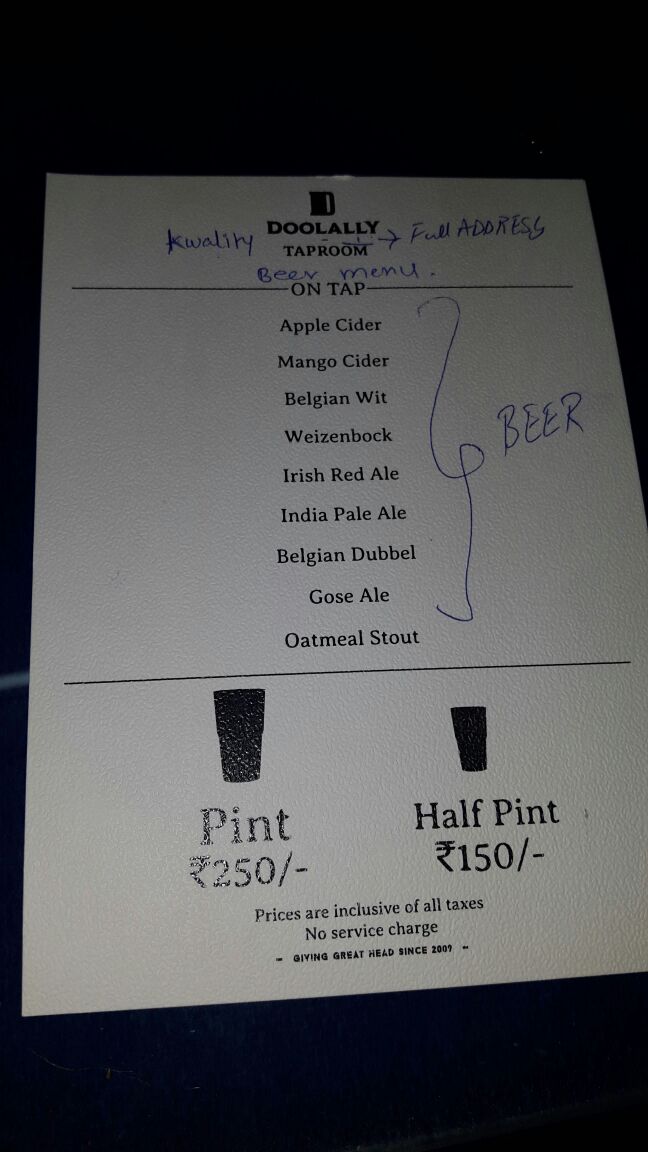 D
DOOLALLY
Kwality TAPROOM → Full ADDRESS
Beer menu.
ON TAP
Apple Cider
Mango Cider
Belgian Wit
Weizenbock
BEER
Irish Red Ale
India Pale Ale
Belgian Dubbel
Gose Ale
Oatmeal Stout
Pint
₹250/-
Half Pint
₹150/-
Prices are inclusive of all taxes
No service charge
- GIVING GREAT HEAD SINCE 2009 -